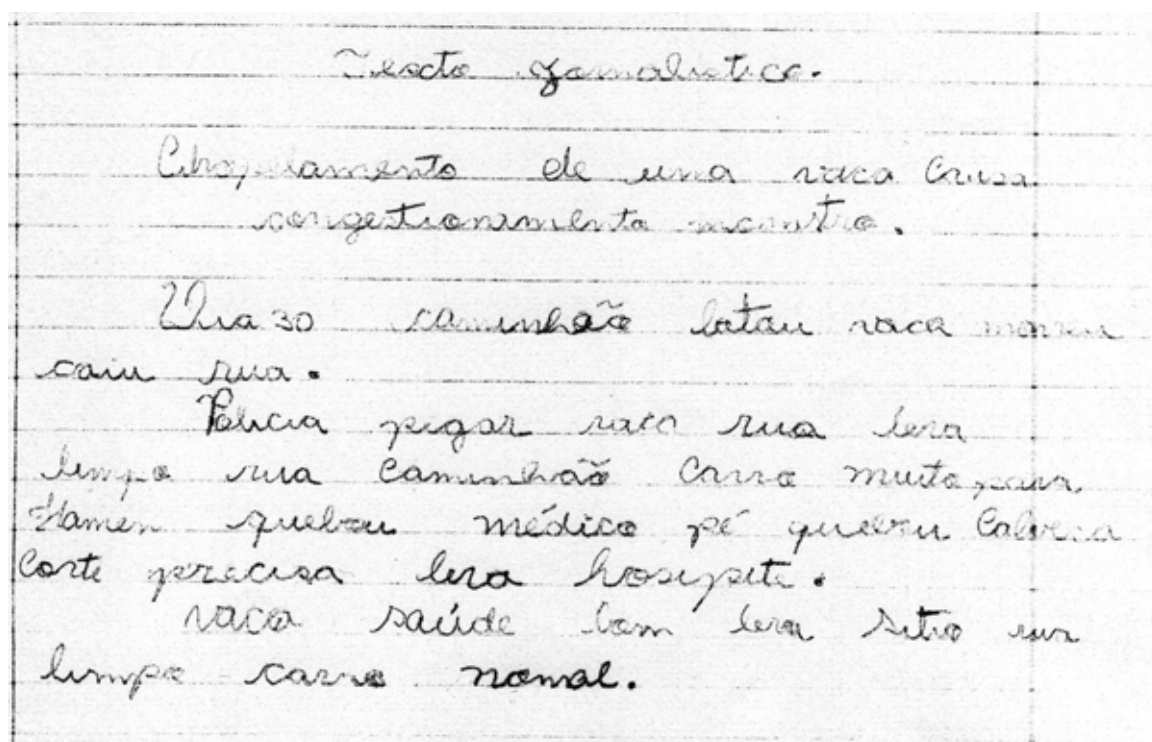 Texto Jornalistico.
Atropelamento de uma vaca Causa
congestionamento monstro.
Dia 30 caminhão bateu vaca morreu
caiu rua.
Policia pegar vaca rua leva
limpo rua caminhão carro muito para
Hamen quebrou médico pé quebrou Cabeça
Corte precisa leva hosipite.
vaca saúde bom leva sitio rua
limpo carro nomal.